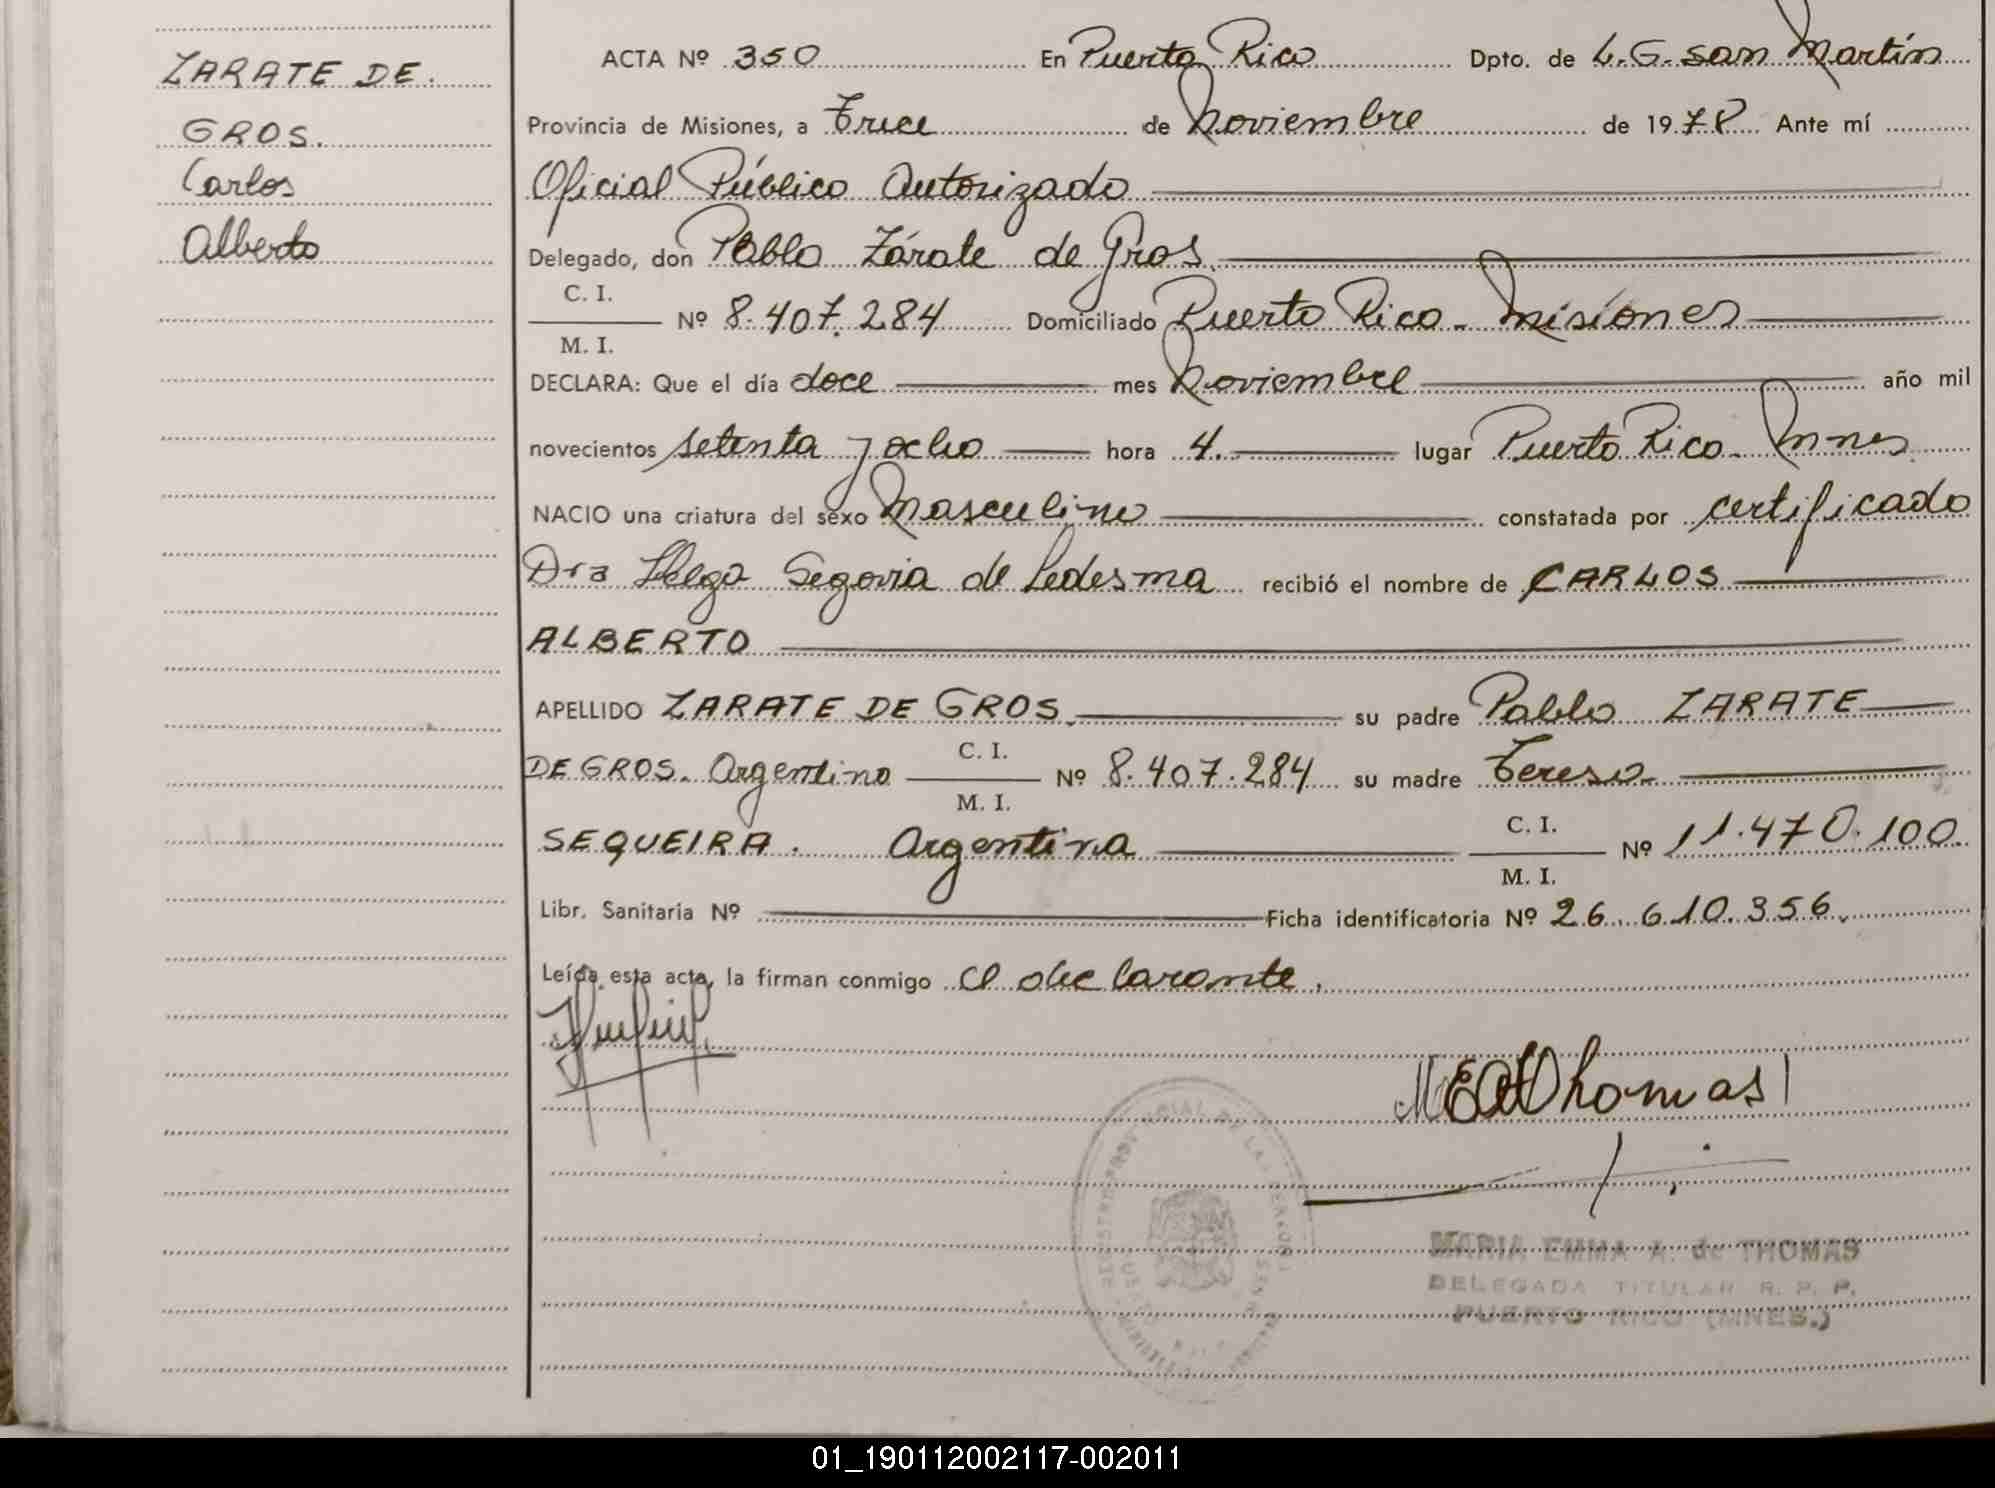 ZARATE DE
GROS.
Carlos
Alberto
ACTA Nº 350 En Puerto Rico Dpto. de L.G. San Martín
Provincia de Misiones, a Trece de Noviembre de 1978 Ante mí
Oficial Público Autorizado
Delegado, don Pablo Zárate de Gros.
C. I.
Nº 8.407.284 Domiciliado Puerto Rico - Misiones
M. I.
DECLARA: Que el día doce mes Noviembre año mil
novecientos setenta y ocho hora 4. lugar Puerto Rico - Mnes.
NACIO una criatura del sexo Masculino constatada por certificado
Dra Helga Segovia de Ledesma recibió el nombre de CARLOS
ALBERTO
APELLIDO ZARATE DE GROS. su padre Pablo ZARATE
DE GROS. Argentino C. I. M. I. Nº 8.407.284 su madre Teresa
SEQUEIRA. Argentina C. I. M. I. Nº 11.470.100.
Libr. Sanitaria Nº Ficha identificatoria Nº 26.610.356.
Leída esta acta, la firman conmigo el declarante.
MEAdThomas
MARIA EMMA A. de THOMAS
DELEGADA TITULAR R. P. P.
PUERTO RICO (MNES.)
01_190112002117-002011